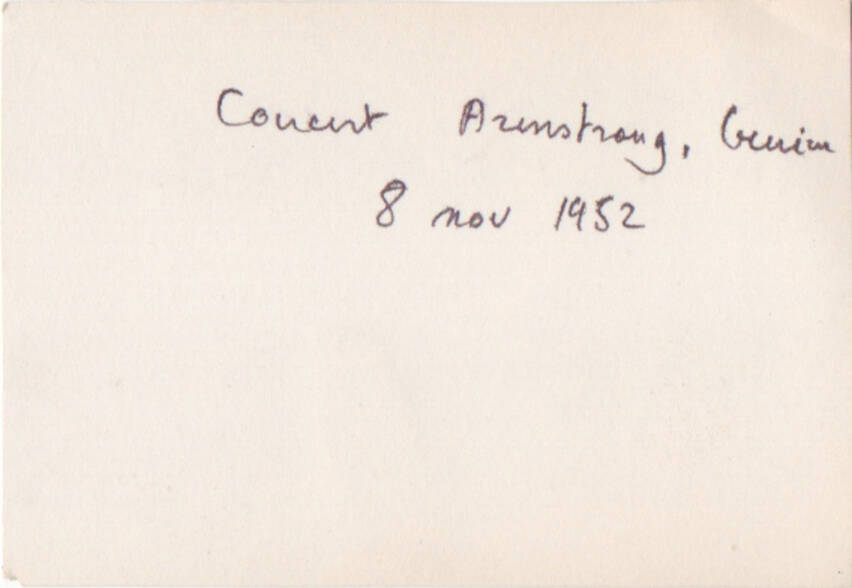 Concert Armstrong,
8 nov 1952